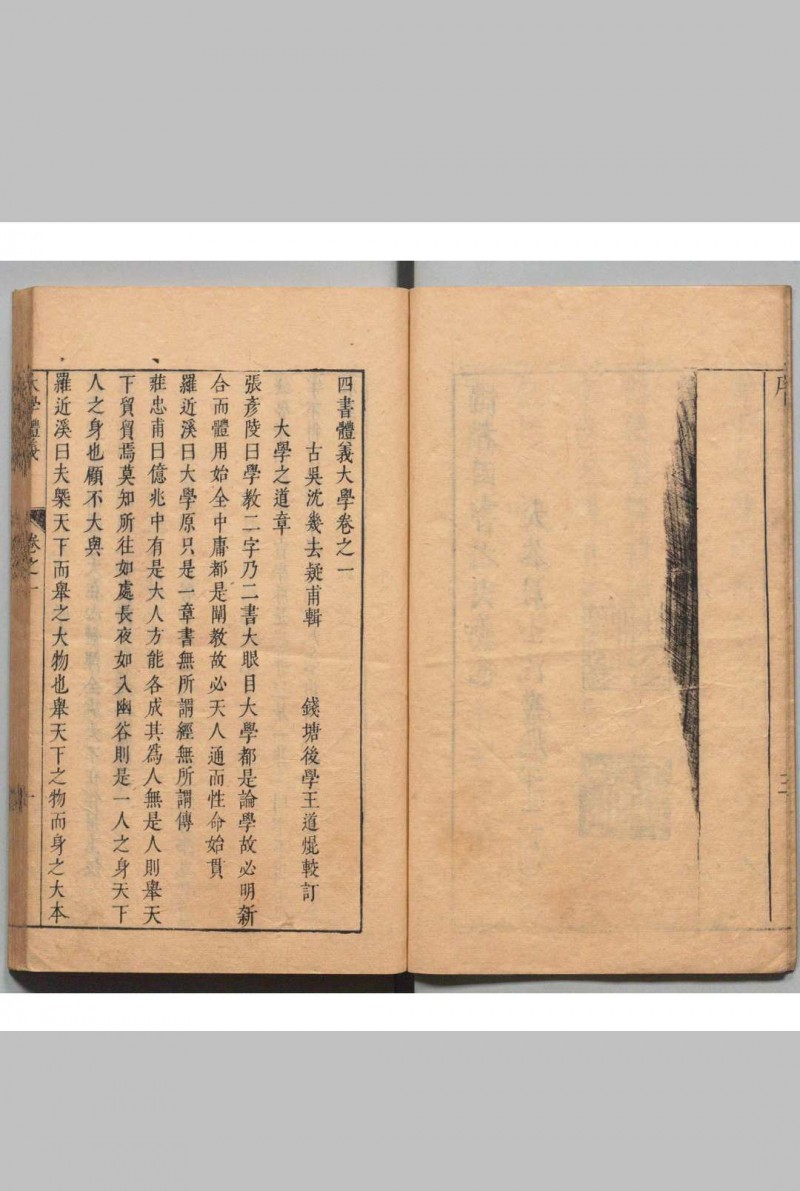 四書體義大學卷之一
古吳沈幾去疑甫輯　錢塘後學王道焜較訂
大學之道章
張彥陵曰學教二字乃二書大眼目大學都是論學故必明新
合而體用始全中庸都是闡教故必天人通而性命始貫
羅近溪曰大學原只是一章書無所謂經無所謂傳
莊忠甫曰億兆中有是大人方能各成其爲人無是人則舉天
下貿貿焉莫知所往如處長夜如入幽谷則是一人之身天下
人之身也顧不大與
羅近溪曰夫槩天下而舉之大物也舉天下之物而身之大本
大學體義
卷之一
一